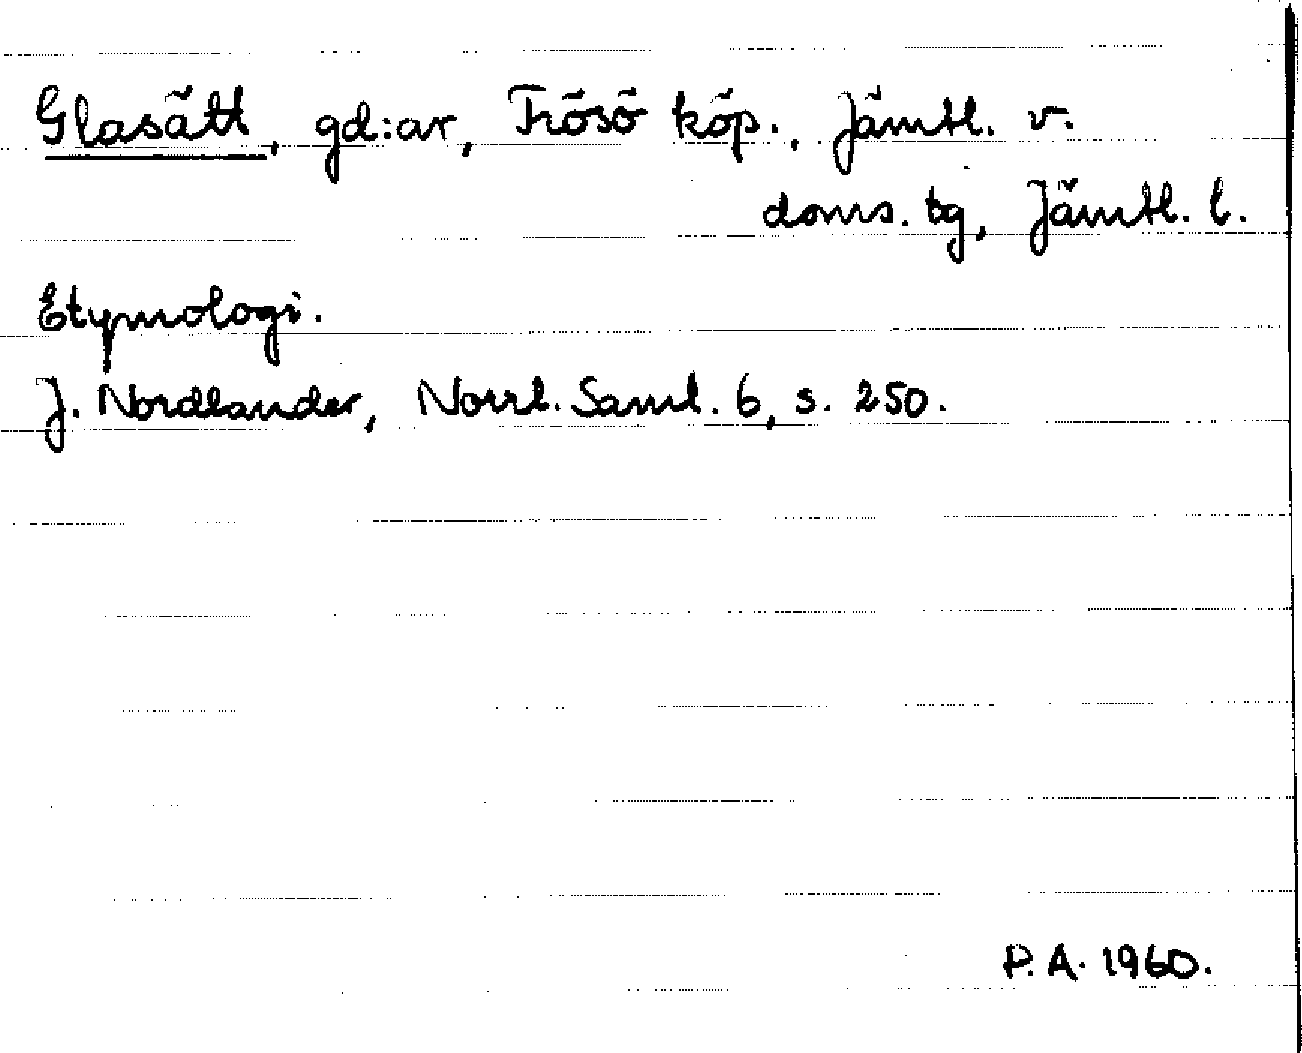 Glasätt, gd:ar, Frösö köp., Jämtl. v.
doms. tg, Jämtl. l.
Etymologi.
J. Nordlander, Norrl. Saml. 6, s. 250.
P. A. 1960.